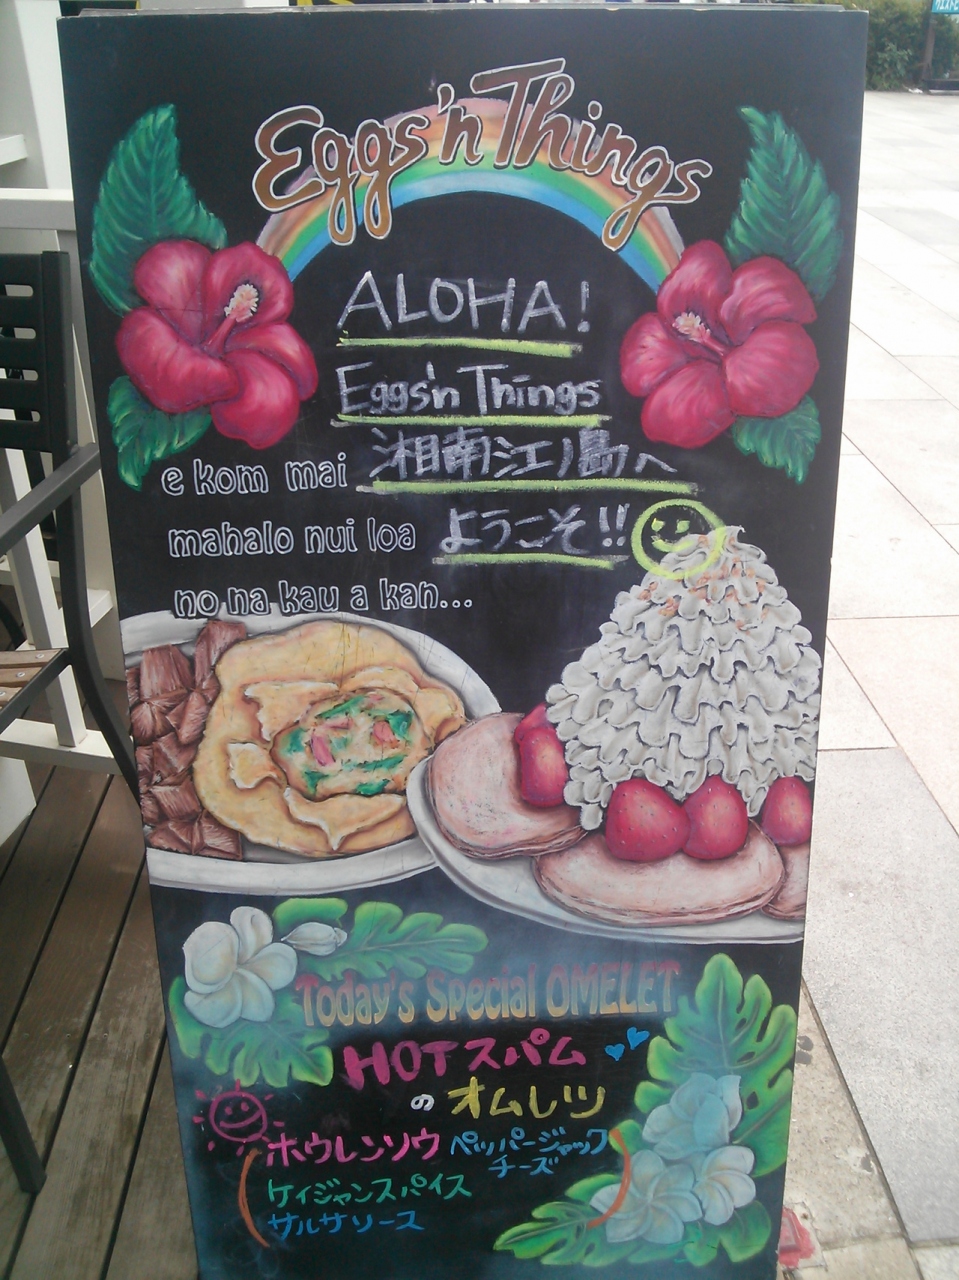 Eggs'n Things
ALOHA!
Eggs'n Things
湘南江ノ島へ
ようこそ!!
e kom mai
mahalo nui loa
no na kau a kan...
Today's Special OMELET
HOTスパム
の オムレツ
ホウレンソウ ペッパージャック
チーズ
ケイジャンスパイス
サルサソース